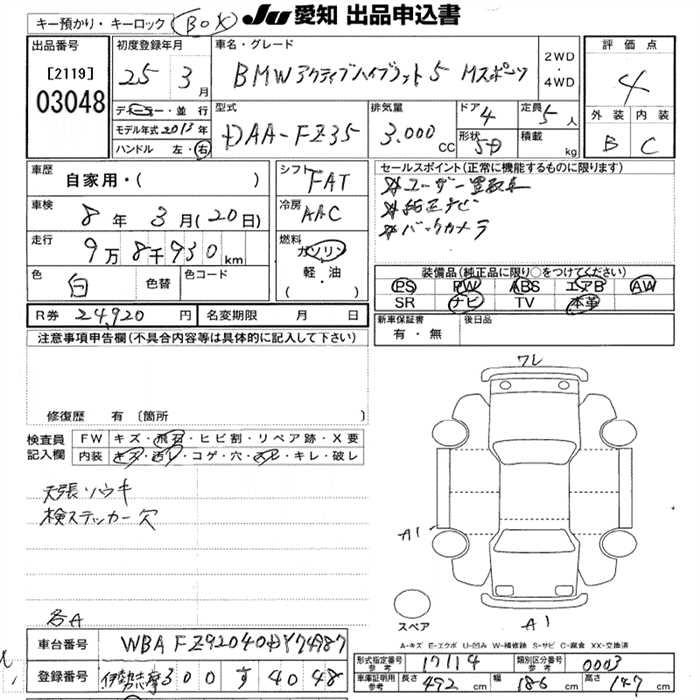 キー預かり・キーロック (BOX) JU 愛知 出品申込書
出品番号 [2119] 03048
初度登録年月 25 3月
ディーラー・並行
モデル年式 2013年
ハンドル 左・右
車名・グレード BMW アクティブハイブリッド5 Mスポーツ 2WD・4WD
型式 DAA-FZ35
排気量 3.000 CC
ドア 4
形状 SD
定員 5人
積載 kg
評価点 4
外装 B 内装 C
車歴 自家用・( )
車検 8年 3月(20日)
走行 9万8千930km
色 白 色替 色コード
シフト FAT
冷房 AAC
燃料 ガソリン 軽・油 ( )
セールスポイント(正常に機能するものに限ります)
※ユーザー買取車
※純正ナビ
※バックカメラ
装備品(純正品に限り○をつけてください)
PS PW ABS エアB AW
SR ナビ TV 本革
R券 24,920円 名変期限 月 日
新車保証書 有・無 後日品
注意事項申告欄(不具合内容等は具体的に記入して下さい)
修復歴 有 〔箇所 〕
検査員記入欄
FW キズ・飛石・ヒビ割・リペア跡・X要
内装 キズ・汚レ・コゲ・穴・スレ・キレ・破レ
天張ソウキ
検ステッカー穴
各A
ワレ
A1
A1
スペア
A-キズ E-エクボ U-凹み W-補修跡 S-サビ C-腐食 XX-交換済
車台番号 WBAFZ92040DY74987
登録番号 伊勢志摩300す4048
形式指定番号参考 17114 類別区分番号参考 0003
車庫証明用参考 長さ 492cm 幅 186cm 高さ 147